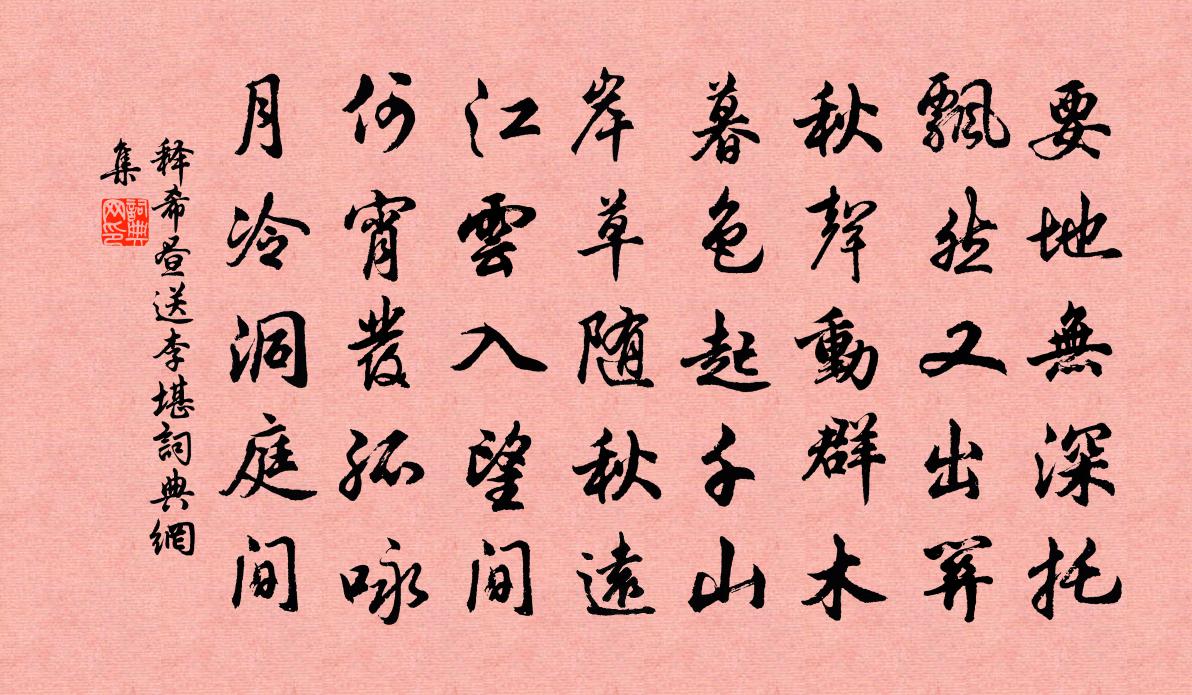 要地無深托
飄然又出關
秋聲動群木
暮色起千山
岸草随秋遠
江雲入望間
何宵發孤咏
月冷洞庭間
释希昼送李堪詞典網
集
詞典
网印